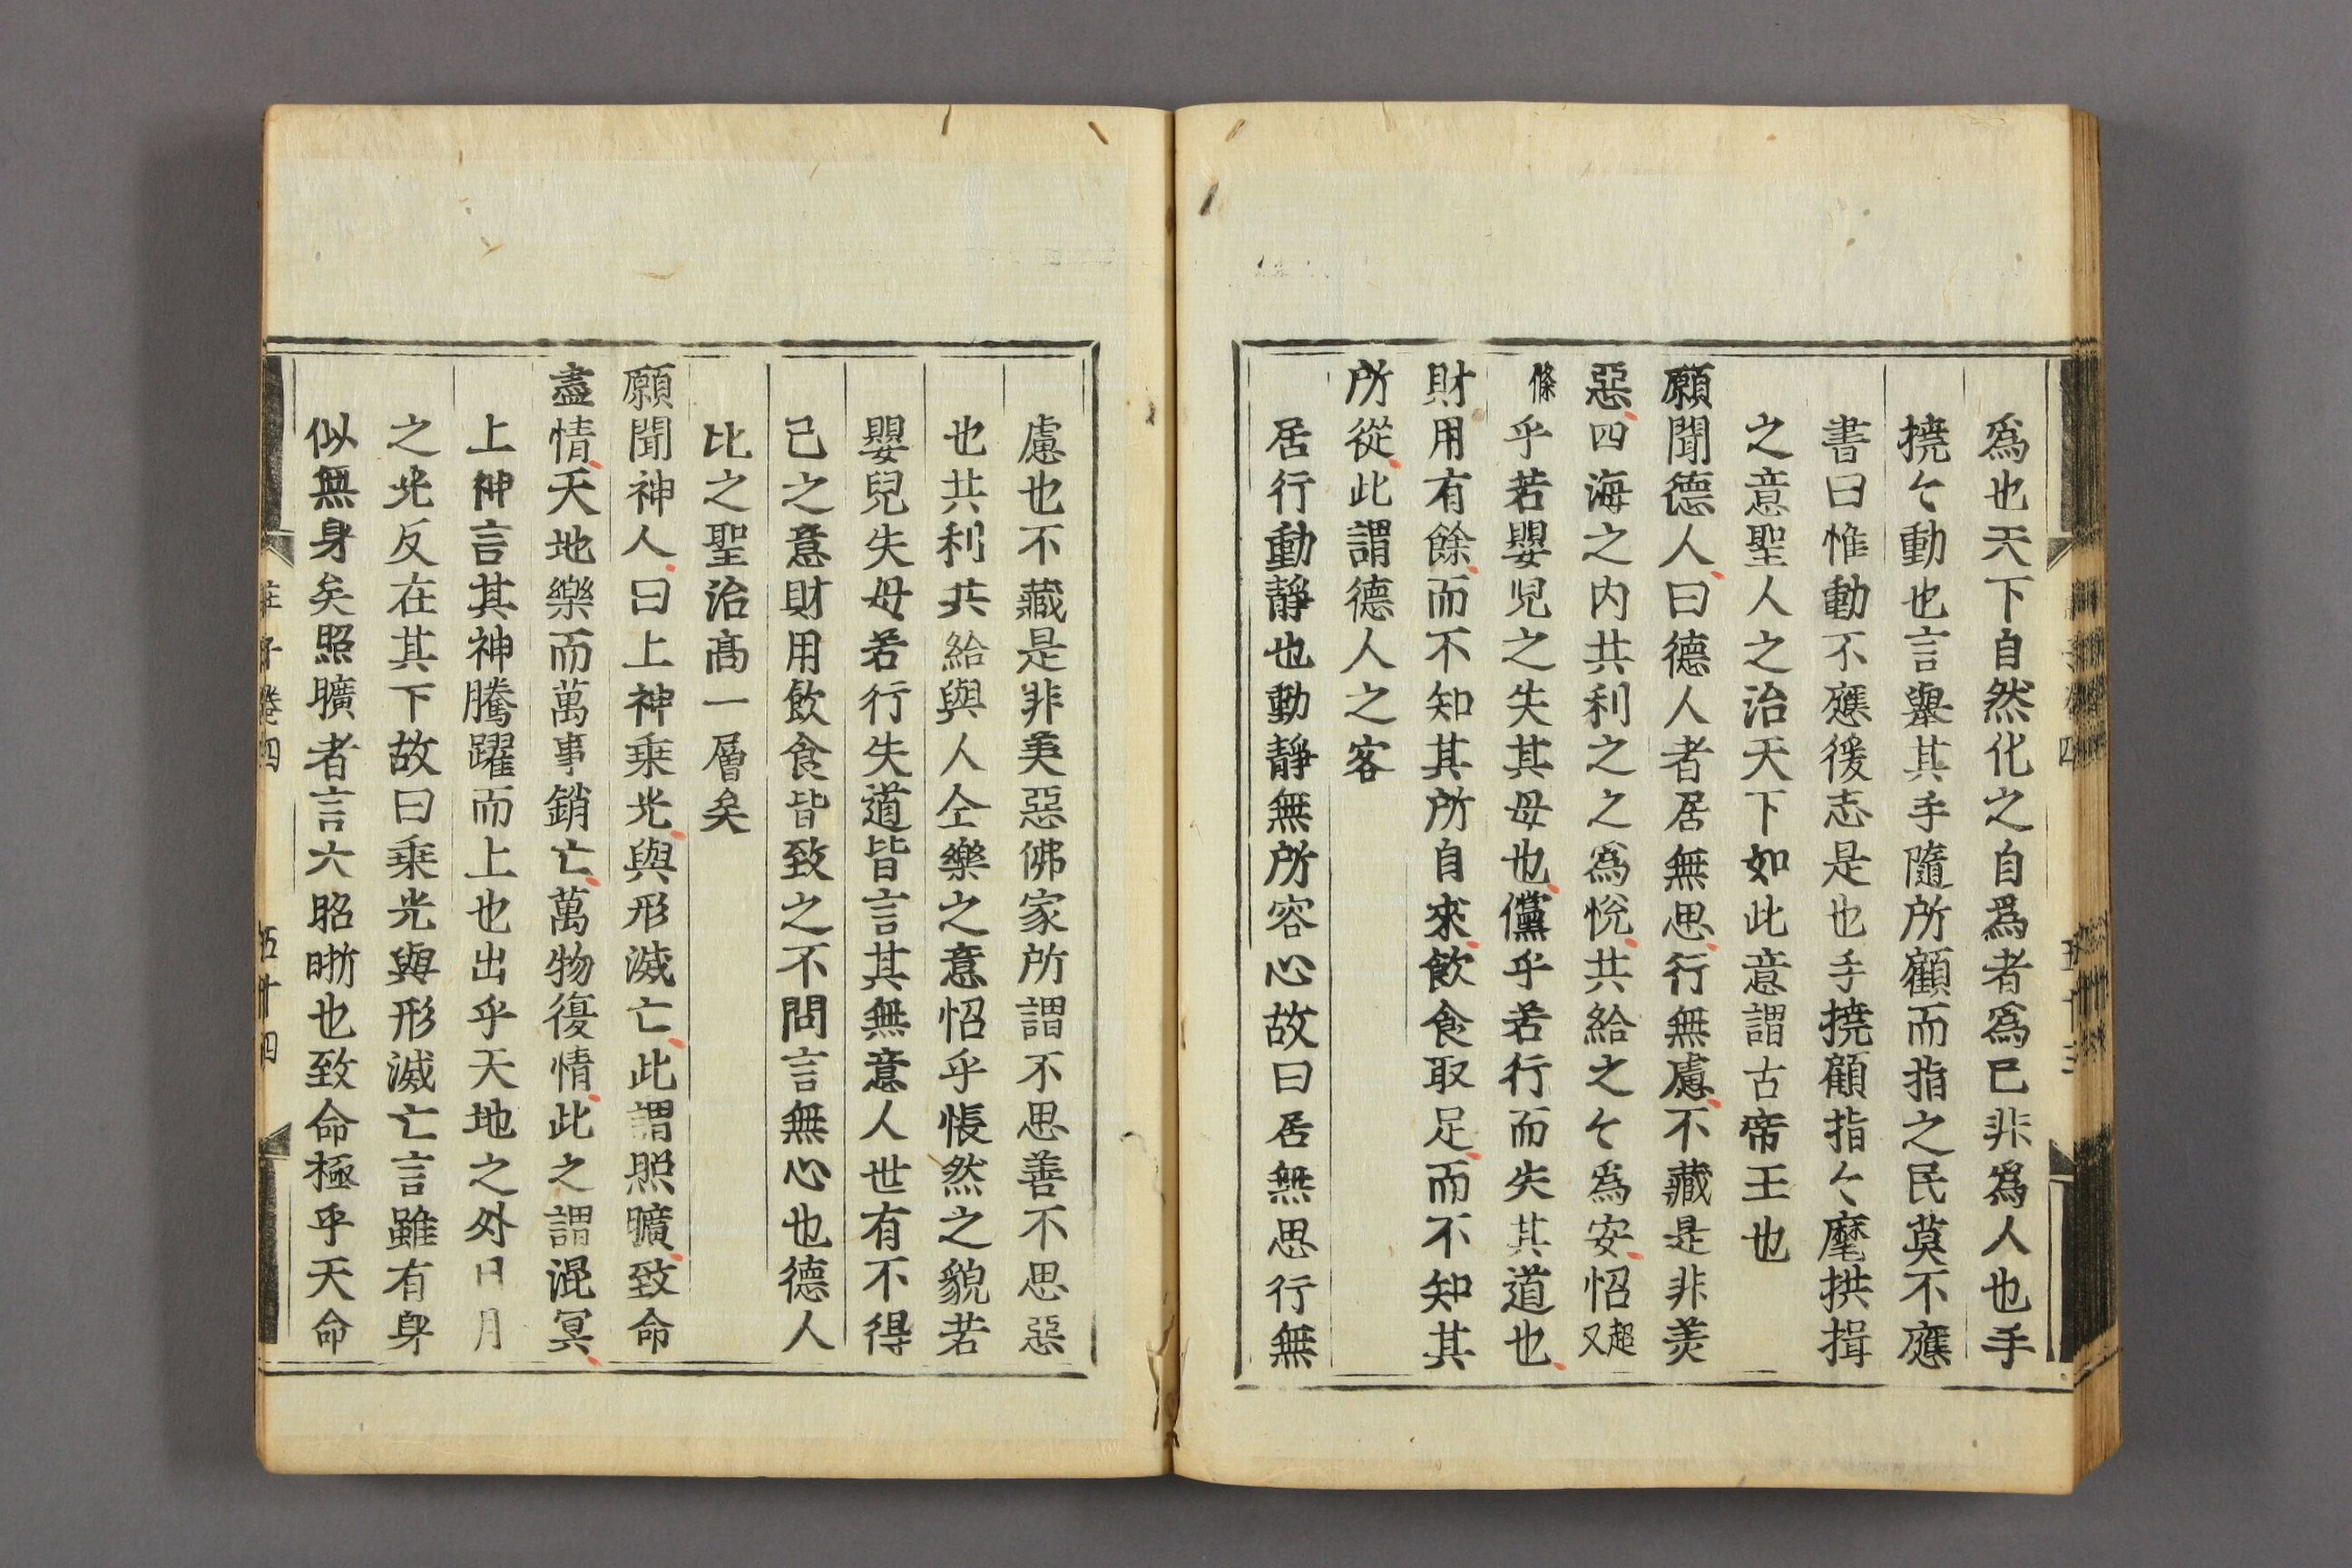 爲也天下自然化之自爲者爲已非爲人也手
撓々動也言舉其手隨所顧而指之民莫不應
書曰惟動不應徯志是也手撓顧指々麾拱揖
之意聖人之治天下如此意謂古帝王也
願聞德人曰德人者居無思行無慮不藏是非美
惡四海之内共利之之爲悅共給之々爲安怊超又
條乎若嬰兒之失其母也儻乎若行而失其道也
財用有餘而不知其所自來飲食取足而不知其
所從此謂德人之容
居行動靜也動靜無所容心故曰居無思行無
慮也不藏是非美惡佛家所謂不思善不思惡
也共利共給與人仝樂之意怊乎悵然之貌若
嬰兒失母若行失道皆言其無意人世有不得
已之意財用飲食皆致之不問言無心也德人
比之聖治高一層矣
願聞神人曰上神乘光與形滅亡此謂照曠致命
盡情天地樂而萬事銷亡萬物復情此之謂混冥
上神言其神騰躍而上也出乎天地之外日月
之光反在其下故曰乘光與形滅亡言雖有身
似無身矣照曠者言大昭晣也致命極乎天命
莊子卷四 五十四